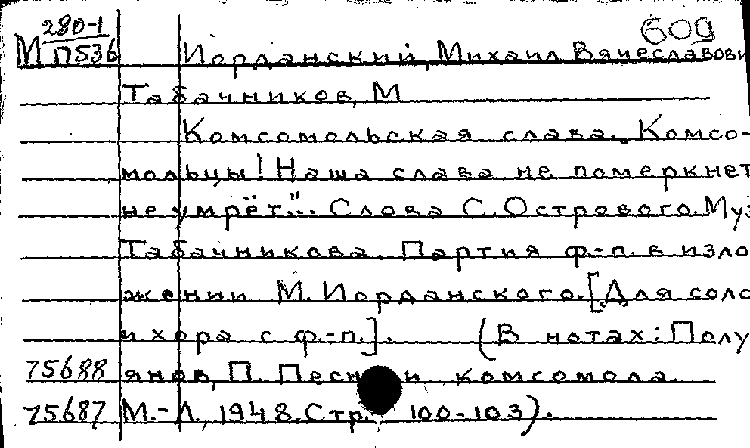 280-1 600
М П536 Иорданский, Михаил Вячеславови
Табачников, М
Комсомольская слава. „Комсо-
мольцы! Наша слава не померкнет
не умрёт."... Слова С. Острового. Муз
Табачникова. Партия ф.-п. в изло
жении М. Иорданского. [Для соло
и хора с ф.-п.]. (В нотах: Полу
75688 янов, П. Песни комсомола.
75687 М.-Л., 1948. Стр. 100-103).